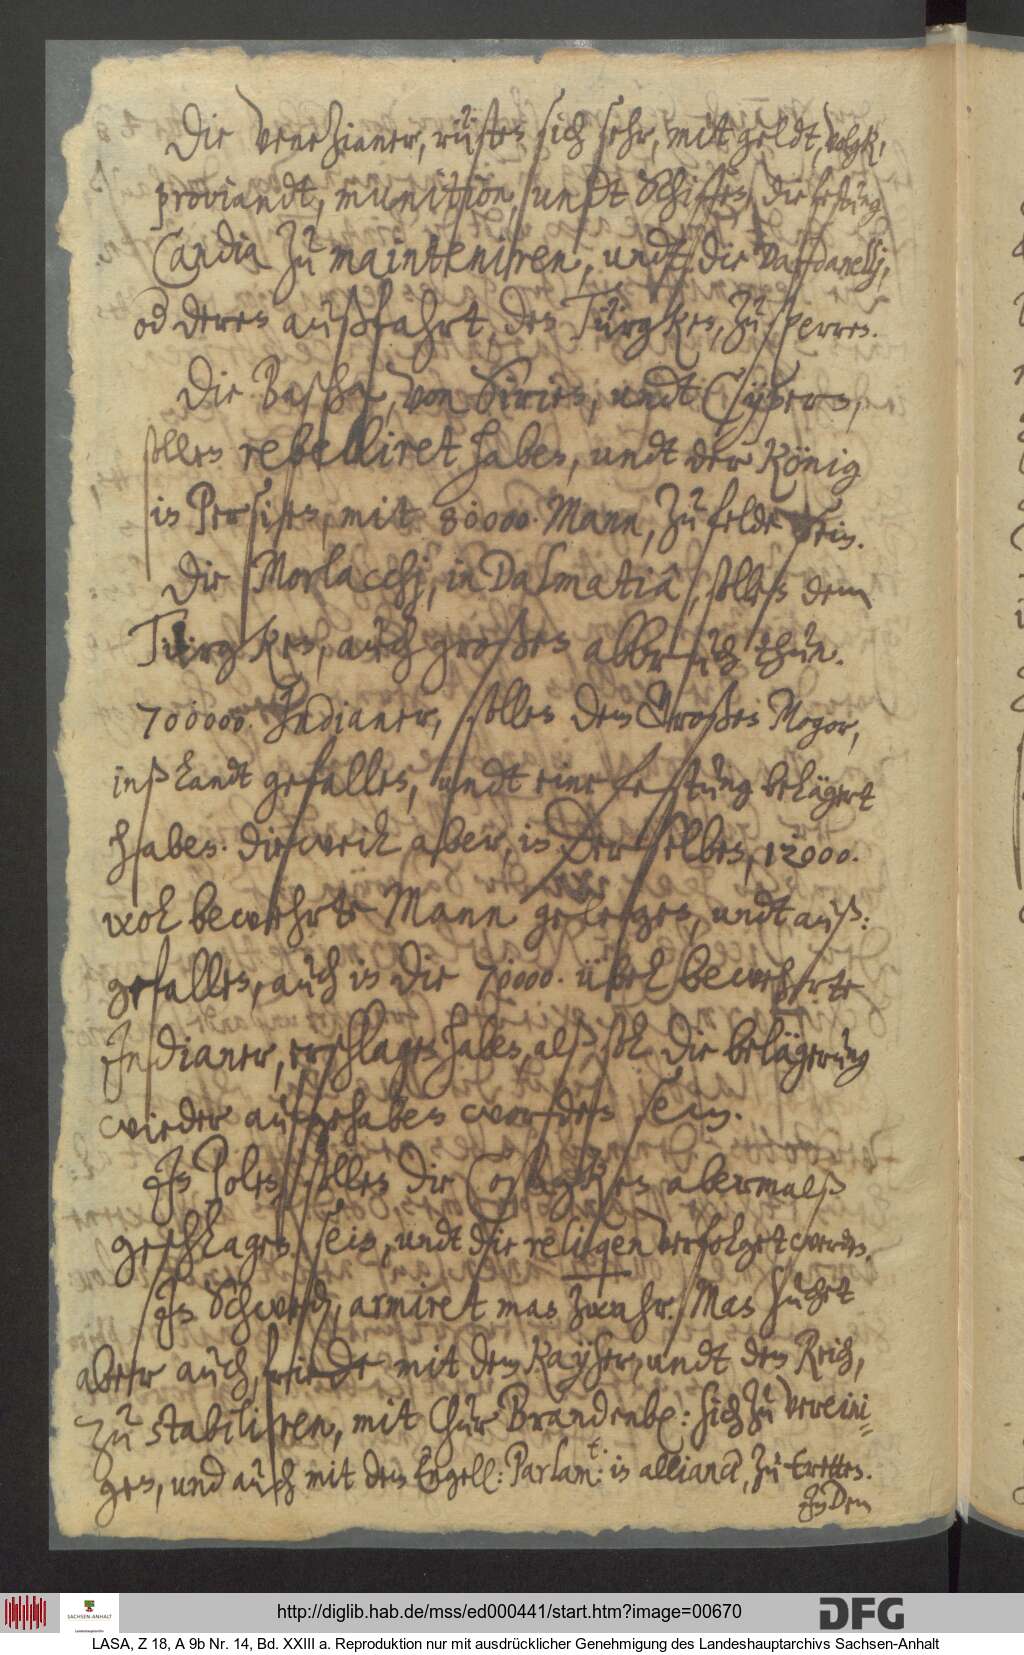 Die Venezianer, rüsten sich sehr, mit geldt, volgk,
proviandt, munition, undt Schiffen, die festung
Candia zu mainteniren, undt die Dardanellj,
od deren außfahrt, den Türgken, zu sperren.
Die Bascha, von Sirien, undt Cypern,
sollen rebelliret haben, undt der König
in Persien, mit 80000. Mann, zu felde sein.
Die Morlacchj, in Dalmatia, sollen dem
Türgken, auch großen abbruch thun.
700000. Indianer, sollen dem Großen Mogor,
inß Landt gefallen, undt eine festung belägert
haben. dieweil aber, in derselben, 12000.
wol bewehrte Mann gelegen, undt auß:
gefallen, auch in die 70000. übel bewehrte
Indianer, erschlagen haben, alß soll die belägerung
wieder aufgehaben worden sein.
In Polen sollen die Cosagken abermalß
geschlagen sein, undt die religion verfolget werden.
In Schweden, armiret man zwahr. Man suchet
aber auch, friede mit dem Kayser, undt dem Reich,
zu stabiliren, mit Chur Brandenb: sich zu verein=
gen, und auch mit dem Engell: Parlam.t: in alliance, zu tretten.
In Dem
http://diglib.hab.de/mss/ed000441/start.htm?image=00670
SACHSEN-ANHALT
DFG
LASA, Z 18, A 9b Nr. 14, Bd. XXIII a. Reproduktion nur mit ausdrücklicher Genehmigung des Landeshauptarchivs Sachsen-Anhalt